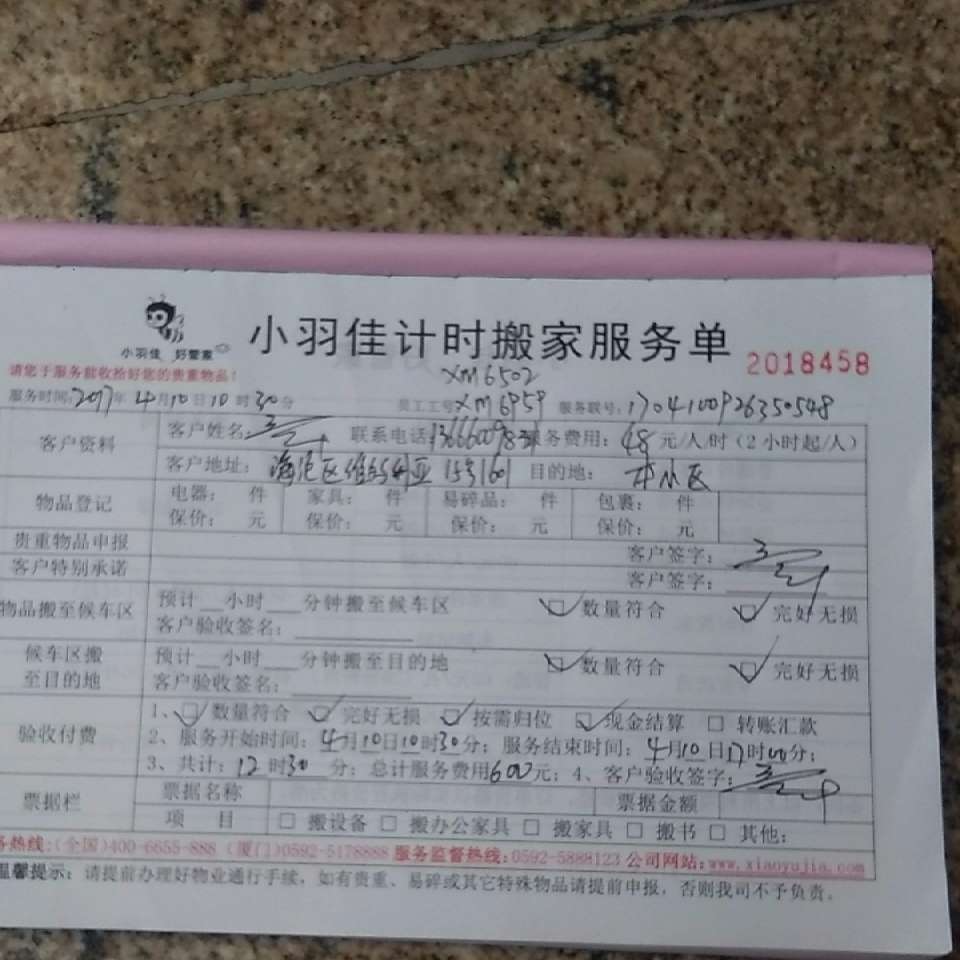 小羽佳 好管家
小羽佳计时搬家服务单
2018458
请您于服务前收拾好您的贵重物品！
XM6502
服务时间：2017年4月10日10时30分 员工工号XM6959 服务联号：170410092635054 8
客户资料 客户姓名： 联系电话 服务费用：48元/人/时（2小时起/人）
客户地址： 海沧区维多利亚15号1601 目的地： 本小区
物品登记 电器： 件 家具： 件 易碎品： 件 包裹： 件
保价： 元 保价： 元 保价： 元 保价： 元
贵重物品申报 客户签字：
客户特别承诺 客户签字：
物品搬至候车区 预计__小时__分钟搬至候车区 □数量符合 □完好无损
客户验收签名：
候车区搬至目的地 预计__小时__分钟搬至目的地 □数量符合 □完好无损
客户验收签名：
验收付费 1、□数量符合 □完好无损 □按需归位 □现金结算 □ 转账汇款
2、服务开始时间：4月10日10时30分；服务结束时间：4月10日17时00分；
3、共计：12时30分；总计服务费用600元；4、客户验收签字：
票据栏 票据名称 票据金额
项 目 □ 搬设备 □ 搬办公家具 □ 搬家具 □ 搬书 □ 其他：
务热线：（全国）400-6655-888 （厦门）0592-5178888 服务监督热线：0592-5888123 公司网站：www.xiaoyujia.com
温馨提示：请提前办理好物业通行手续，如有贵重、易碎或其它特殊物品请提前申报，否则我司不予负责。